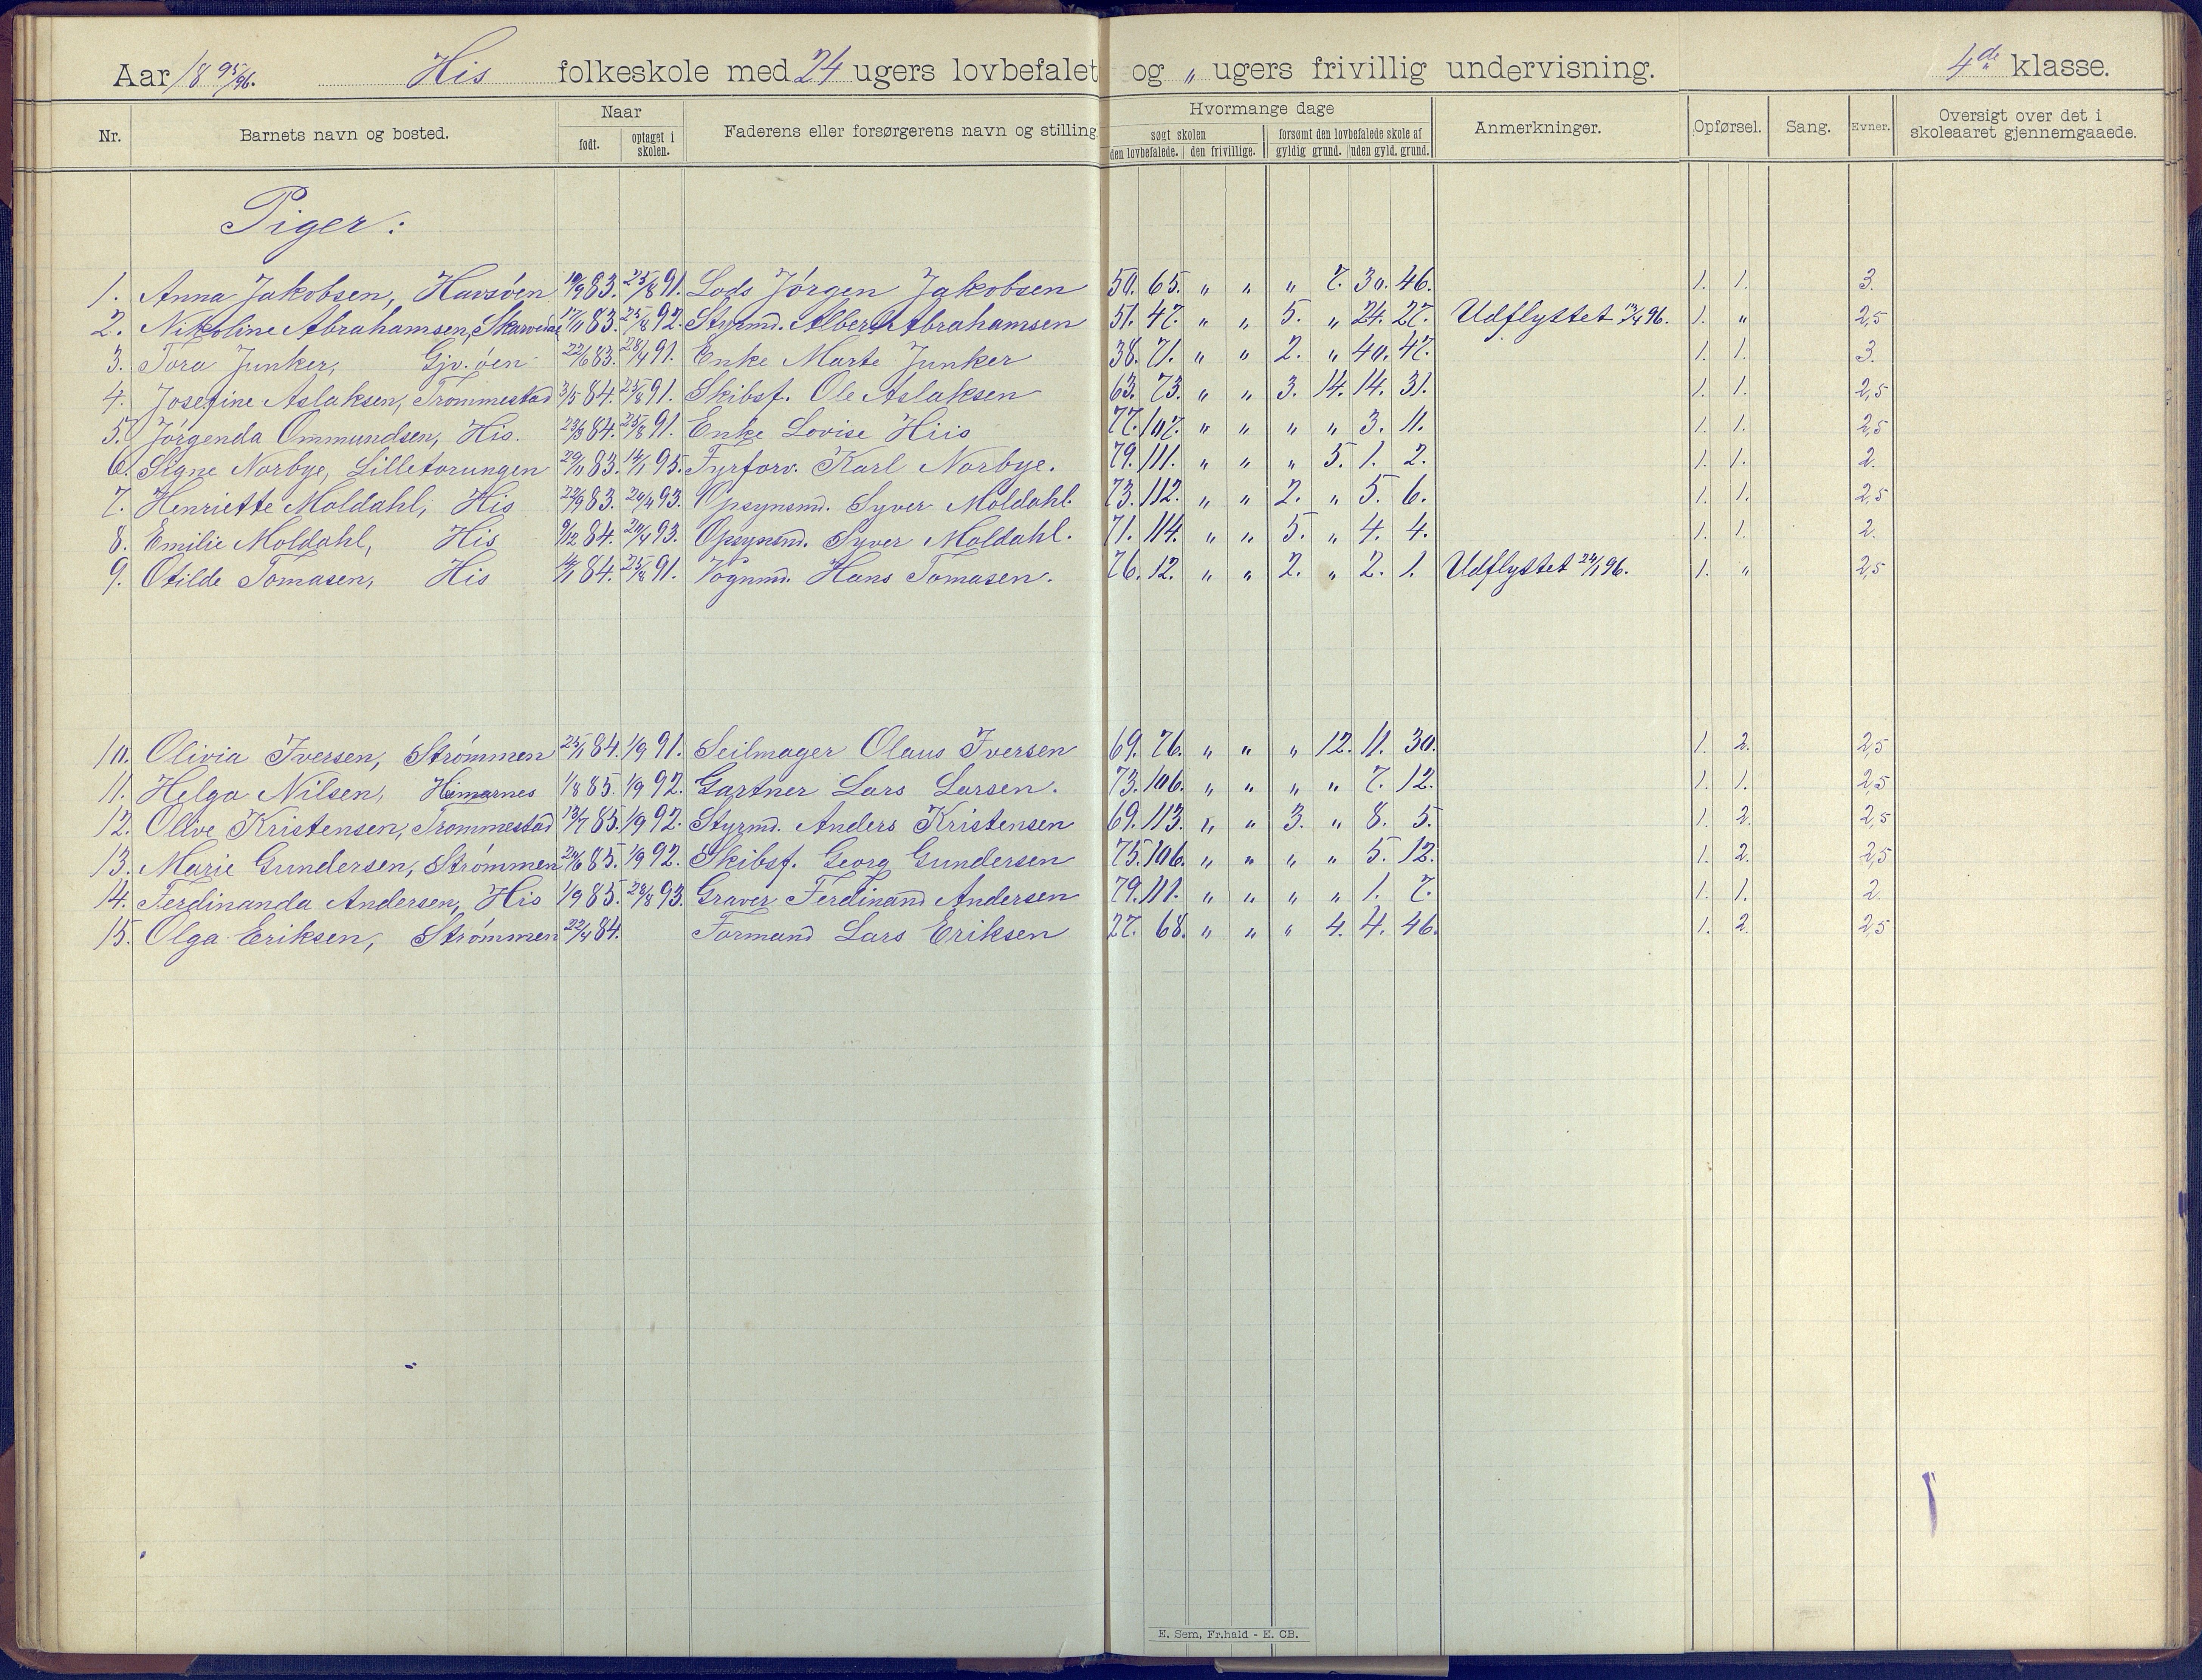 Aar 18 95/96. His folkeskole med 24 ugers lovbefalet og „ ugers frivillig undervisning. 4de klasse.
Nr. Barnets navn og bosted. Naar født. optaget i skolen. Faderens eller forsørgerens navn og stilling. Hvormange dage søgt skolen den lovbefalede. den frivillige. forsømt den lovbefalede skole af gyldig grund. uden gyld. grund. Anmerkninger. Opførsel. Sang. Evner. Oversigt over det i skoleaaret gjennemgaaede.
Piger:
1. Anna Jakobsen, Havsöen 19/9 83. 25/8 91. Lods Jörgen Jakobsen 50. 65. „ „ „ 7. 30. 46. 1. 1. 3.
2. Nikoline Abrahamsen, 17/11 83. 25/8 92. Styrmd. Albert Abrahamsen 51. 47. „ „ 5. „ 24. 27. Udflyttet 96. 1. „ 2,5
3. Tora Junker, Gjv.öen 22/6 83. 28/4 91. Enke Marte Junker 38. 71. „ „ 2. „ 40. 47. 1. 1. 3.
4. Josefine Aslaksen, Trommestad 3/5 84. 25/8 91. Skibsf. Ole Aslaksen 63. 73. „ „ 3. 14. 14. 31. 1. 1. 2,5
5. Jörgenda Ommundsen, His. 23/3 84. 25/8 91. Enke Lovise Hiis 77. 107. „ „ „ „ 3. 11. 1. 1. 2,5
6. Signe Norbye, Lilletorungen 29/11 83. 14/1 95. Fyrforv. Karl Norbye. 79. 111. „ „ „ 5. 1. 2. 1. 1. 2.
7. Henriette Moldahl, His 22/9 83. 20/4 93. Opsynsmd. Syver Moldahl. 73. 112. „ „ 2. „ 5. 6. 1. 1. 2,5
8. Emilie Moldahl, His 9/12 84. 20/4 93. Opsynsmd. Syver Moldahl. 71. 114. „ „ 5. „ 4. 4. 1. 1. 2.
9. Otilde Tomasen, His 84. 25/8 91. Vognmd. Hans Tomasen. 76. 12. „ „ 2. „ 2. 1. Udflyttet 24/1 96. 1. „ 2,5
10. Olivia Iversen, Strömmen 25/1 84. 1/9 91. Seilmager Olaus Iversen 69. 76. „ „ „ 12. 11. 30. 1. 2. 2,5
11. Helga Nilsen, 1/8 85. 1/9 92. Gartner Lars Larsen. 73. 106. „ „ „ „ 7. 12. 1. 1. 2,5
12. Olive Kristensen, Trommestad 13/7 85. 1/9 92. Styrmd. Anders Kristensen 69. 113. „ „ 3. „ 8. 5. 1. 2. 2,5
13. Marie Gundersen, Strömmen 20/6 85. 1/9 92. Skibsf. Georg Gundersen 75. 106. „ „ „ „ 5. 12. 1. 2. 2,5
14. Ferdinanda Andersen, His 1/9 85. 28/8 93. Graver Ferdinand Andersen 79. 111. „ „ „ „ 1. 7. 1. 1. 2.
15. Olga Eriksen, Strömmen 22/4 84. Formand Lars Eriksen 27. 68. „ „ „ 4. 4. 46. 1. 2. 2,5
E. Sem, Fr.hald - E. CB.